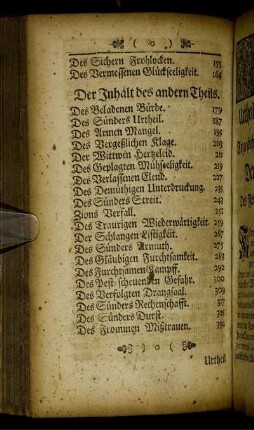 Des Sichern Frohlocken. 155
Des Vermessenen Glückseeligkeit. 165
Der Inhalt des andern Theils.
Des Beladenen Bürde. 179
Des Sünders Urtheil. 187
Des Armen Mangel. 195
Des Vergeßlichen Klage. 203
Der Wittwen Hertzeleid. 211
Des Geplagten Mühseeligkeit. 219
Des Verlassenen Elend. 227
Des Demüthigen Unterdruckung. 235
Des Sünders Streit. 243
Zions Verfall. 251
Des Traurigen Wiederwärtigkeit. 259
Der Schlangen Listigkeit. 267
Des Sünders Armuth. 275
Des Gläubigen Furchtsamkeit. 283
Des Furchtsamen Kampff. 292
Des Pest-scheuenden Gefahr. 300
Des Verfolgten Drangsaal. 309
Des Sünders Rechenschafft.
Des Sünders Durst.
Des Frommen Mißtrauen.
Urtheil